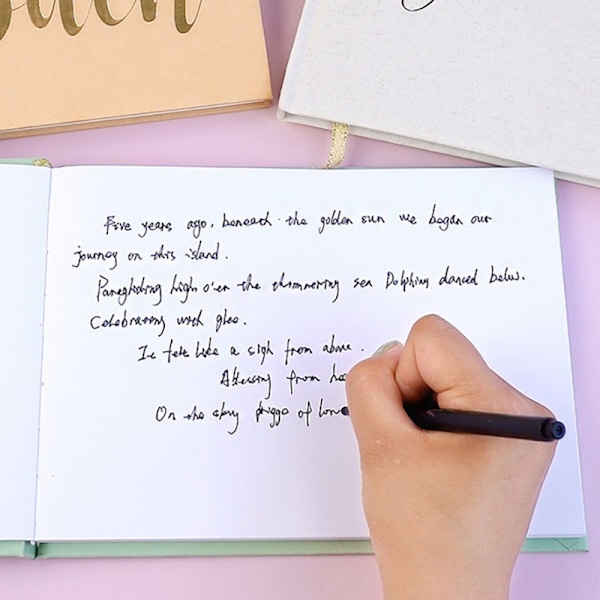 Five years ago, beneath the golden sun we began our
journey on this island.
Paragliding high o'er the shimmering sea Dolphins danced below.
Celebrating with glee.
It felt like a sigh from above.
from
On the of